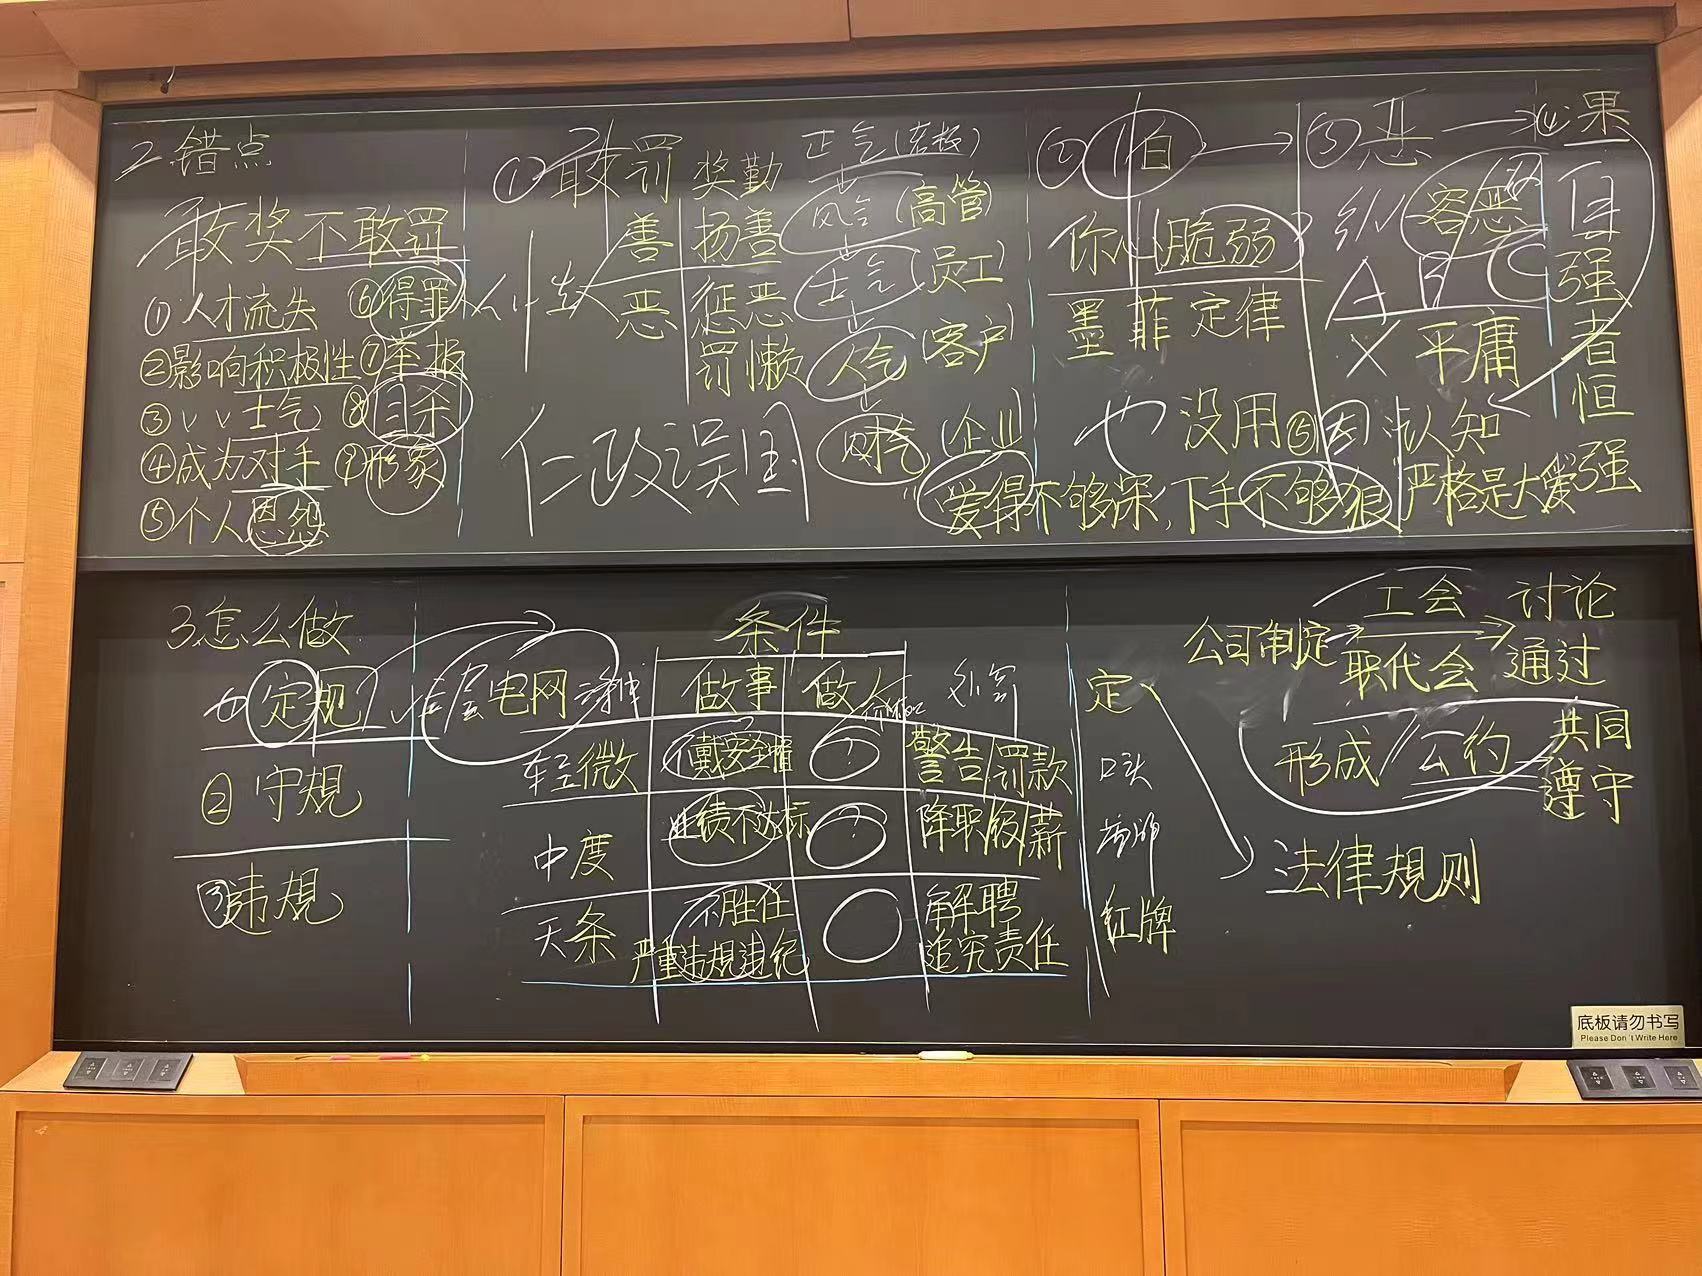 2 错点
敢奖不敢罚
①人才流失 ⑥得罪人
②影响积极性 ⑦举报
③〃〃士气 ⑧自杀
④成为对手 ⑨形象
⑤个人恩怨
①敢罚
善
恶
奖勤
扬善
惩恶
罚懒
仁政误国
正气(老板)
风气(高管)
士气(员工)
人气(客户)
财气(企业)
②怕→
你心脆弱
墨菲定律
也没用
③恶→④果
纵容恶
A B C
X 平庸
自强者恒强
⑤因 认知
"爱得不够深,下手不够狠 严格是大爱
3.怎么做
①定规
②守规
③违规
三层电网
条件
做事 做人
轻微 不戴安全帽 ? 警告 罚款
中度 业绩不达标 ? 降职/级/薪
天条 不胜任 解聘
严重违规违纪 追究责任
定
口头
黄牌
红牌
公司制定 工会 讨论
职代会 通过
形成 公约 共同
遵守
法律规则
底板请勿书写
Please Don't Write Here